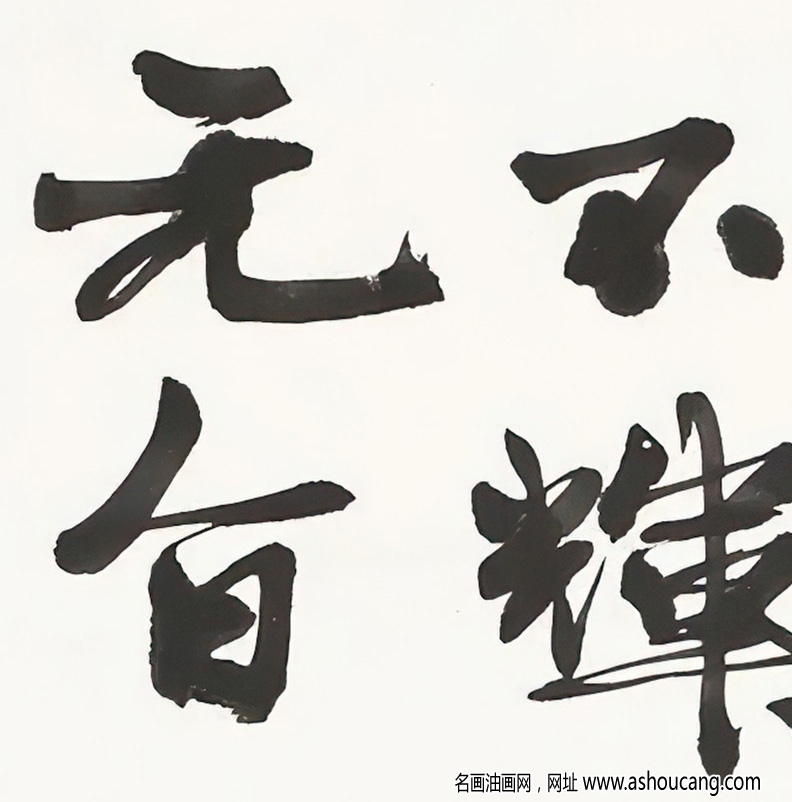 不輝
元
名画油画网，网址 www.ashoucang.com